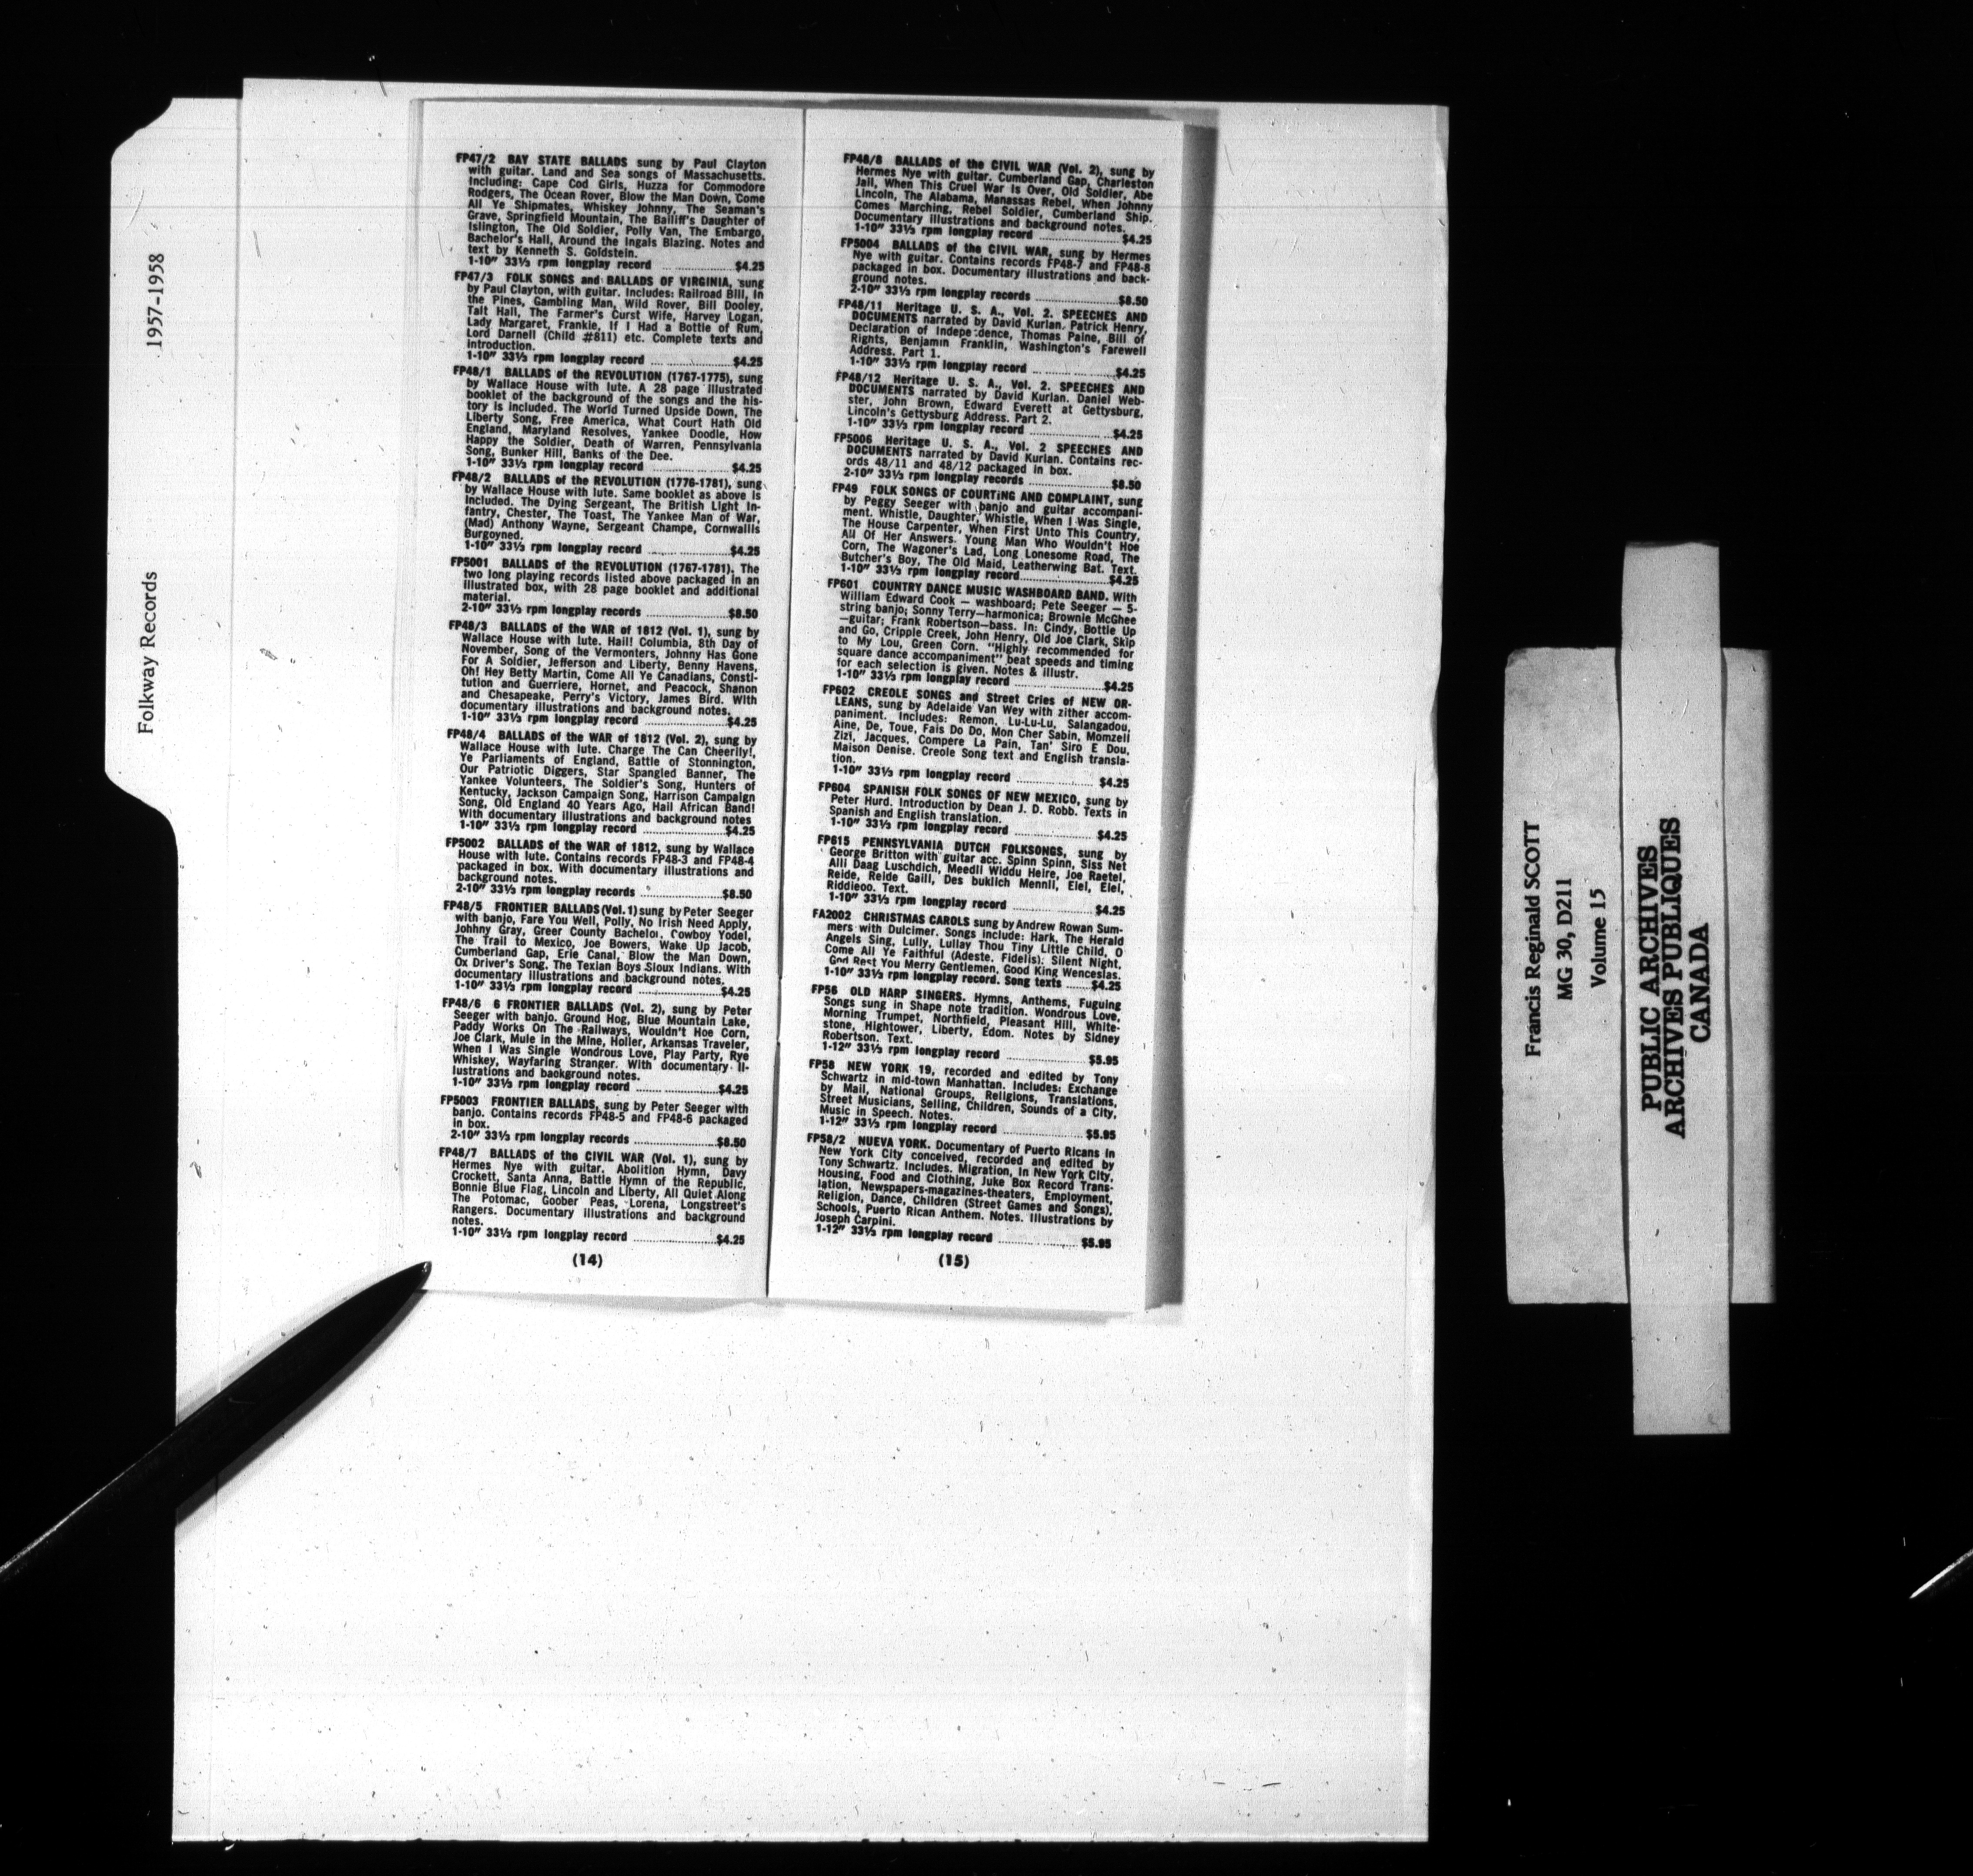 Folkway Records 1957-1958
FP47/2 BAY STATE BALLADS sung by Paul Clayton
with guitar. Land and Sea songs of Massachusetts.
Including: Cape Cod Girls, Huzza for Commodore
Rodgers, The Ocean Rover, Blow the Man Down, Come
All Ye Shipmates, Whiskey Johnny, The Seaman's
Grave, Springfield Mountain, The Bailiff's Daughter of
Islington, The Old Soldier, Polly Van, The Embargo,
Bachelor's Hall, Around the Ingals Blazing. Notes and
text by Kenneth S. Goldstein.
1-10" 33⅓ rpm longplay record ....................$4.25
FP47/3 FOLK SONGS and BALLADS OF VIRGINIA, sung
by Paul Clayton, with guitar. Includes: Railroad Bill, In
the Pines, Gambling Man, Wild Rover, Bill Dooley,
Talt Hall, The Farmer's Curst Wife, Harvey Logan,
Lady Margaret, Frankie, If I Had a Bottle of Rum,
Lord Darnell (Child #811) etc. Complete texts and
introduction.
1-10" 33⅓ rpm longplay record ....................$4.25
FP48/1 BALLADS of the REVOLUTION (1767-1775), sung
by Wallace House with lute. A 28 page illustrated
booklet of the background of the songs and the his-
tory is included. The World Turned Upside Down, The
Liberty Song, Free America, What Court Hath Old
England, Maryland Resolves, Yankee Doodle, How
Happy the Soldier, Death of Warren, Pennsylvania
Song, Bunker Hill, Banks of the Dee.
1-10" 33⅓ rpm longplay record ....................$4.25
FP48/2 BALLADS of the REVOLUTION (1776-1781), sung
by Wallace House with lute. Same booklet as above is
included. The Dying Sergeant, The British Light In-
fantry, Chester, The Toast, The Yankee Man of War,
(Mad) Anthony Wayne, Sergeant Champe, Cornwallis
Burgoyned.
1-10" 33⅓ rpm longplay record ....................$4.25
FP5001 BALLADS of the REVOLUTION (1767-1781). The
two long playing records listed above packaged in an
illustrated box, with 28 page booklet and additional
material.
2-10" 33⅓ rpm longplay records ....................$8.50
FP48/3 BALLADS of the WAR of 1812 (Vol. 1), sung by
Wallace House with lute. Hail! Columbia, 8th Day of
November, Song of the Vermonters, Johnny Has Gone
For A Soldier, Jefferson and Liberty, Benny Havens,
Oh! Hey Betty Martin, Come All Ye Canadians, Consti-
tution and Guerriere, Hornet, and Peacock, Shanon
and Chesapeake, Perry's Victory, James Bird. With
documentary illustrations and background notes.
1-10" 33⅓ rpm longplay record ....................$4.25
FP48/4 BALLADS of the WAR of 1812 (Vol. 2), sung by
Wallace House with lute. Charge The Can Cheerily!,
Ye Parliaments of England, Battle of Stonnington,
Our Patriotic Diggers, Star Spangled Banner, The
Yankee Volunteers, The Soldier's Song, Hunters of
Kentucky, Jackson Campaign Song, Harrison Campaign
Song, Old England 40 Years Ago, Hail African Band!
With documentary illustrations and background notes
1-10" 33⅓ rpm longplay record ....................$4.25
FP5002 BALLADS of the WAR of 1812, sung by Wallace
House with lute. Contains records FP48-3 and FP48-4
packaged in box. With documentary illustrations and
background notes.
2-10" 33⅓ rpm longplay records ....................$8.50
FP48/5 FRONTIER BALLADS (Vol. 1) sung by Peter Seeger
with banjo, Fare You Well, Polly, No Irish Need Apply,
Johhny Gray, Greer County Bachelor, Cowboy Yodel,
The Trail to Mexico, Joe Bowers, Wake Up Jacob,
Cumberland Gap, Erie Canal, Blow the Man Down,
Ox Driver's Song, The Texian Boys Sioux Indians. With
documentary illustrations and background notes.
1-10" 33⅓ rpm longplay record ....................$4.25
FP48/6 6 FRONTIER BALLADS (Vol. 2), sung by Peter
Seeger with banjo. Ground Hog, Blue Mountain Lake,
Paddy Works On The Railways, Wouldn't Hoe Corn,
Joe Clark, Mule in the Mine, Holler, Arkansas Traveler,
When I Was Single Wondrous Love, Play Party, Rye
Whiskey, Wayfaring Stranger. With documentary il-
lustrations and background notes.
1-10" 33⅓ rpm longplay record ....................$4.25
FP5003 FRONTIER BALLADS, sung by Peter Seeger with
banjo. Contains records FP48-5 and FP48-6 packaged
in box.
2-10" 33⅓ rpm longplay records ....................$8.50
FP48/7 BALLADS of the CIVIL WAR (Vol. 1), sung by
Hermes Nye with guitar. Abolition Hymn, Davy
Crockett, Santa Anna, Battle Hymn of the Republic,
Bonnie Blue Flag, Lincoln and Liberty, All Quiet Along
The Potomac, Goober Peas, Lorena, Longstreet's
Rangers. Documentary illustrations and background
notes.
1-10" 33⅓ rpm longplay record ....................$4.25
(14)
FP48/8 BALLADS of the CIVIL WAR (Vol. 2), sung by
Hermes Nye with guitar. Cumberland Gap, Charleston
Jail, When This Cruel War Is Over, Old Soldier, Abe
Lincoln, The Alabama, Manassas Rebel, When Johnny
Comes Marching, Rebel Soldier, Cumberland Ship.
Documentary illustrations and background notes.
1-10" 33⅓ rpm longplay record ....................$4.25
FP5004 BALLADS of the CIVIL WAR, sung by Hermes
Nye with guitar. Contains records FP48-7 and FP48-8
packaged in box. Documentary illustrations and back-
ground notes.
2-10" 33⅓ rpm longplay records ....................$8.50
FP48/11 Heritage U. S. A., Vol. 2. SPEECHES AND
DOCUMENTS narrated by David Kurlan. Patrick Henry,
Declaration of Indepe dence, Thomas Paine, Bill of
Rights, Benjamin Franklin, Washington's Farewell
Address. Part 1.
1-10" 33⅓ rpm longplay record ....................$4.25
FP48/12 Heritage U. S. A., Vol. 2. SPEECHES AND
DOCUMENTS narrated by David Kurlan. Daniel Web-
ster, John Brown, Edward Everett at Gettysburg,
Lincoln's Gettysburg Address. Part 2.
1-10" 33⅓ rpm longplay record ....................$4.25
FP5006 Heritage U. S. A., Vol. 2 SPEECHES AND
DOCUMENTS narrated by David Kurlan. Contains rec-
ords 48/11 and 48/12 packaged in box.
2-10" 33⅓ rpm longplay records ....................$8.50
FP49 FOLK SONGS OF COURTING AND COMPLAINT, sung
by Peggy Seeger with banjo and guitar accompani-
ment. Whistle, Daughter, Whistle, When I Was Single,
The House Carpenter, When First Unto This Country,
All Of Her Answers. Young Man Who Wouldn't Hoe
Corn, The Wagoner's Lad, Long Lonesome Road, The
Butcher's Boy, The Old Maid, Leatherwing Bat. Text.
1-10" 33⅓ rpm longplay record....................$4.25
FP601 COUNTRY DANCE MUSIC WASHBOARD BAND. With
William Edward Cook — washboard; Pete Seeger — 5-
string banjo; Sonny Terry—harmonica; Brownie McGhee
—guitar; Frank Robertson—bass. In: Cindy, Bottle Up
and Go, Cripple Creek, John Henry, Old Joe Clark, Skip
to My Lou, Green Corn. "Highly recommended for
square dance accompaniment" beat speeds and timing
for each selection is given. Notes & illustr.
1-10" 33⅓ rpm longplay record ....................$4.25
FP602 CREOLE SONGS and Street Cries of NEW OR-
LEANS, sung by Adelaide Van Wey with zither accom-
paniment. Includes: Remon, Lu-Lu-Lu, Salangadou,
Aine, De, Toue, Fais Do Do, Mon Cher Sabin, Momzell
Zizi, Jacques, Compere La Pain, Tan' Siro E Dou,
Maison Denise. Creole Song text and English transla-
tion.
1-10" 33⅓ rpm longplay record ....................$4.25
FP604 SPANISH FOLK SONGS OF NEW MEXICO, sung by
Peter Hurd. Introduction by Dean J. D. Robb. Texts in
Spanish and English translation.
1-10" 33⅓ rpm longplay record ....................$4.25
FP615 PENNSYLVANIA DUTCH FOLKSONGS, sung by
George Britton with guitar acc. Spinn Spinn, Siss Net
Alli Daag Luschdich, Meedli Widdu Heire, Joe Raetel,
Reide, Reide Gaili, Des buklich Mennli, Elei, Elei,
Riddieoo. Text.
1-10" 33⅓ rpm longplay record ....................$4.25
FA2002 CHRISTMAS CAROLS sung by Andrew Rowan Sum-
mers with Dulcimer. Songs include: Hark, The Herald
Angels Sing, Lully, Lullay Thou Tiny Little Child, O
Come All Ye Faithful (Adeste. Fidelis): Silent Night,
God Rest You Merry Gentlemen, Good King Wenceslas.
1-10" 33⅓ rpm longplay record. Song texts .......$4.25
FP56 OLD HARP SINGERS. Hymns, Anthems, Fuguing
Songs sung in Shape note tradition. Wondrous Love,
Morning Trumpet, Northfield, Pleasant Hill, White-
stone, Hightower, Liberty, Edom. Notes by Sidney
Robertson. Text.
1-12" 33⅓ rpm longplay record ....................$5.95
FP58 NEW YORK 19, recorded and edited by Tony
Schwartz in mid-town Manhattan. Includes: Exchange
by Mail, National Groups, Religions, Translations,
Street Musicians, Selling, Children, Sounds of a City,
Music in Speech. Notes.
1-12" 33⅓ rpm longplay record ....................$5.95
FP58/2 NUEVA YORK. Documentary of Puerto Ricans in
New York City conceived, recorded and edited by
Tony Schwartz. Includes. Migration, In New York City,
Housing, Food and Clothing, Juke Box Record Trans-
lation, Newspapers-magazines-theaters, Employment,
Religion, Dance, Children (Street Games and Songs),
Schools, Puerto Rican Anthem. Notes. Illustrations by
Joseph Carpini.
1-12" 33⅓ rpm longplay record ....................$5.95
(15)
Francis Reginald SCOTT
MG 30, D211
Volume 15
PUBLIC ARCHIVES
ARCHIVES PUBLIQUES
CANADA